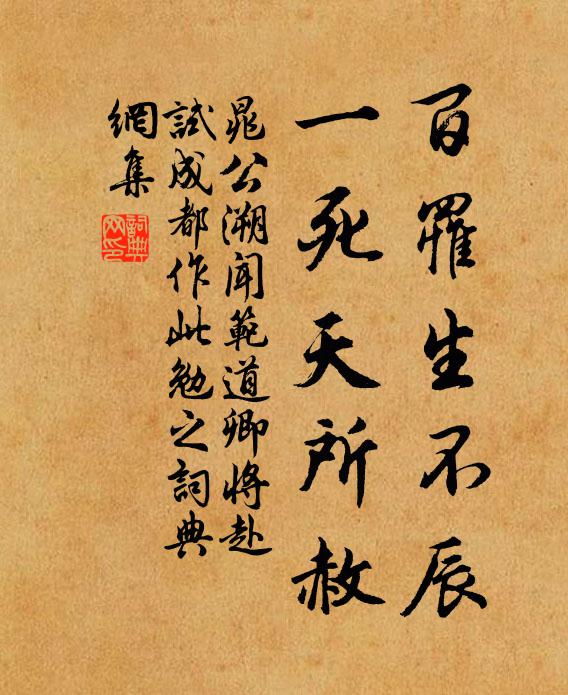 百罹生不辰
一死天所赦
晁公溯聞範道卿將赴
試成都作此勉之詞典
網集
詞典
网印